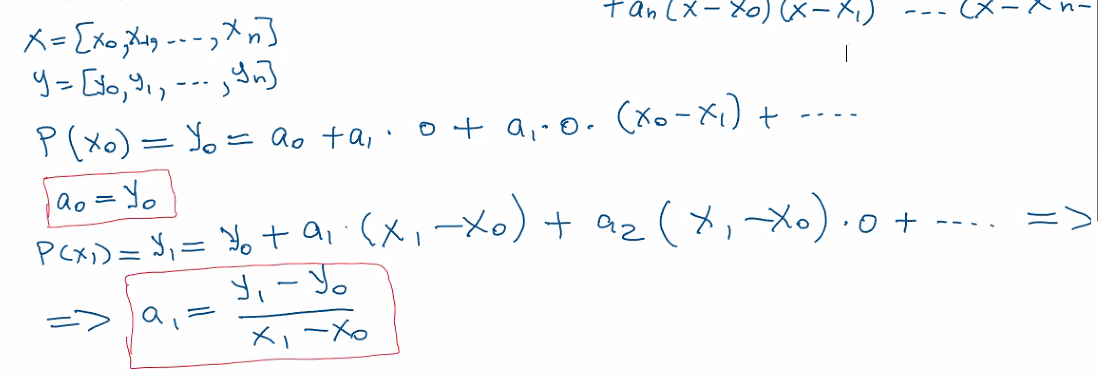 + aₙ(x-x₀)(x-x₁) ---- (x-xₙ₋
x=[x₀,x₁, ----, xₙ]
y=[y₀,y₁, ---, yₙ]
P(x₀) = y₀ = a₀ + a₁ · 0 + a₁·0· (x₀-x₁) + ----
a₀ = y₀
P(x₁) = y₁ = y₀ + a₁·(x₁-x₀) + a₂(x₁-x₀)·0 + ---- =>
=> a₁ = (y₁ - y₀)/(x₁ - x₀)